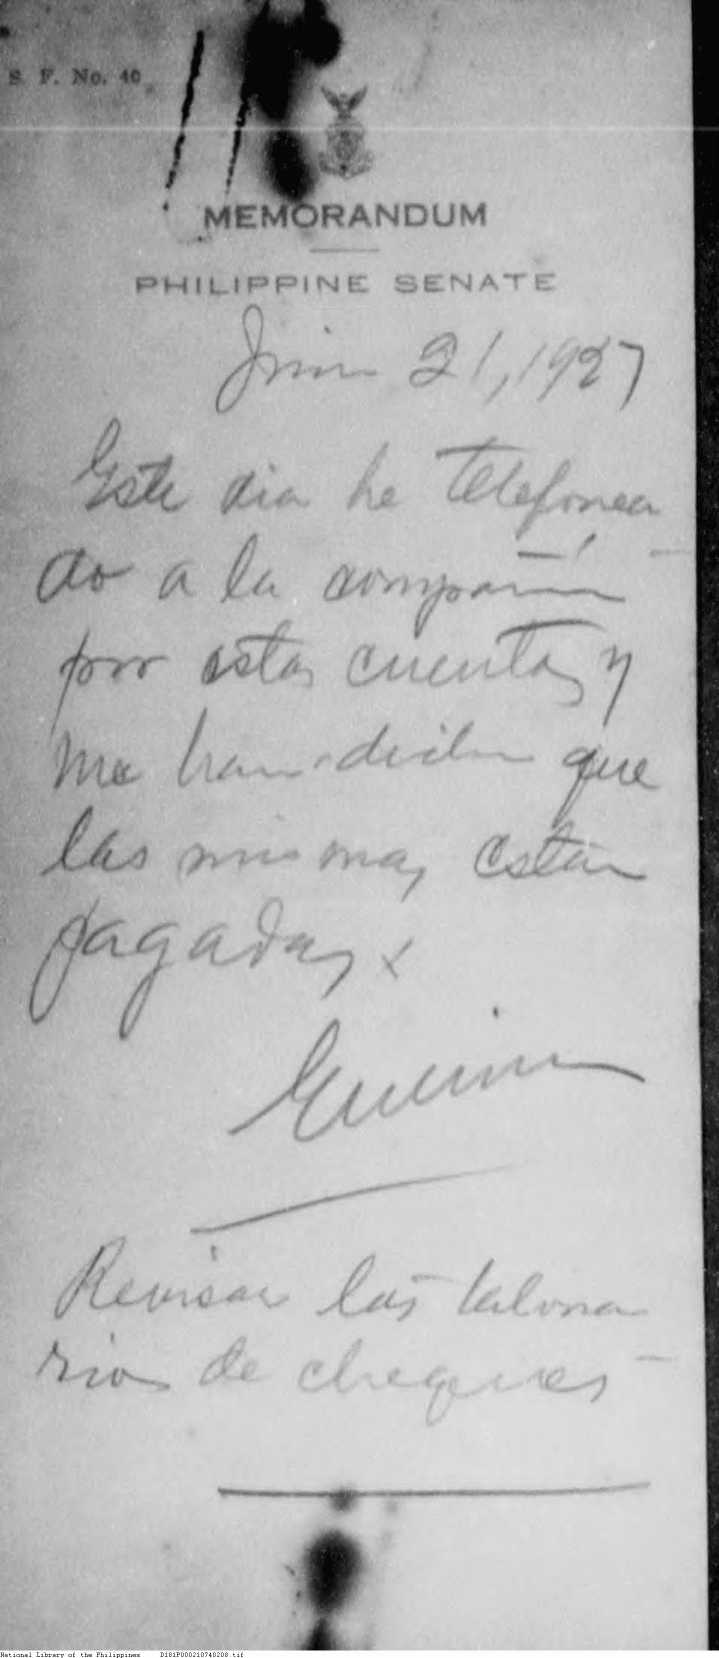 S. F. No. 40
MEMORANDUM
PHILIPPINE SENATE
21, 1927
Este dia he telefonea-
do a la compañía
por estas cuentas y
me han dicho que
las mismas están
pagadas x
Revisar los talona-
rios de cheques
National Library of the Philippines D181P000210740208.tif